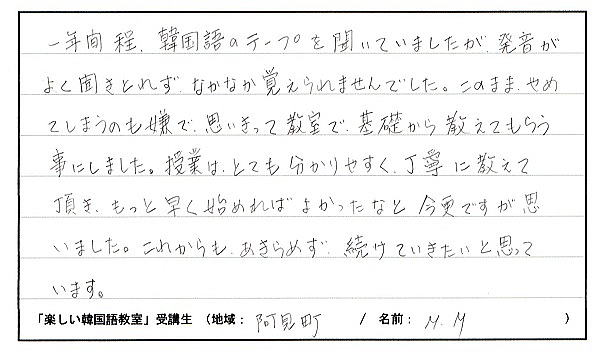 一年間程、韓国語のテープを聞いていましたが、発音が
よく聞きとれず、なかなか覚えられませんでした。このまま、やめ
てしまうのも嫌で、思いきって教室で、基礎から教えてもらう
事にしました。授業は、とても分かりやすく、丁寧に教えて
頂き、もっと早く始めればよかったなと今更ですが思
いました。これからも、あきらめず、続けていきたいと思って
います。
「楽しい韓国語教室」受講生 （地域： 阿見町 / 名前： M.M ）